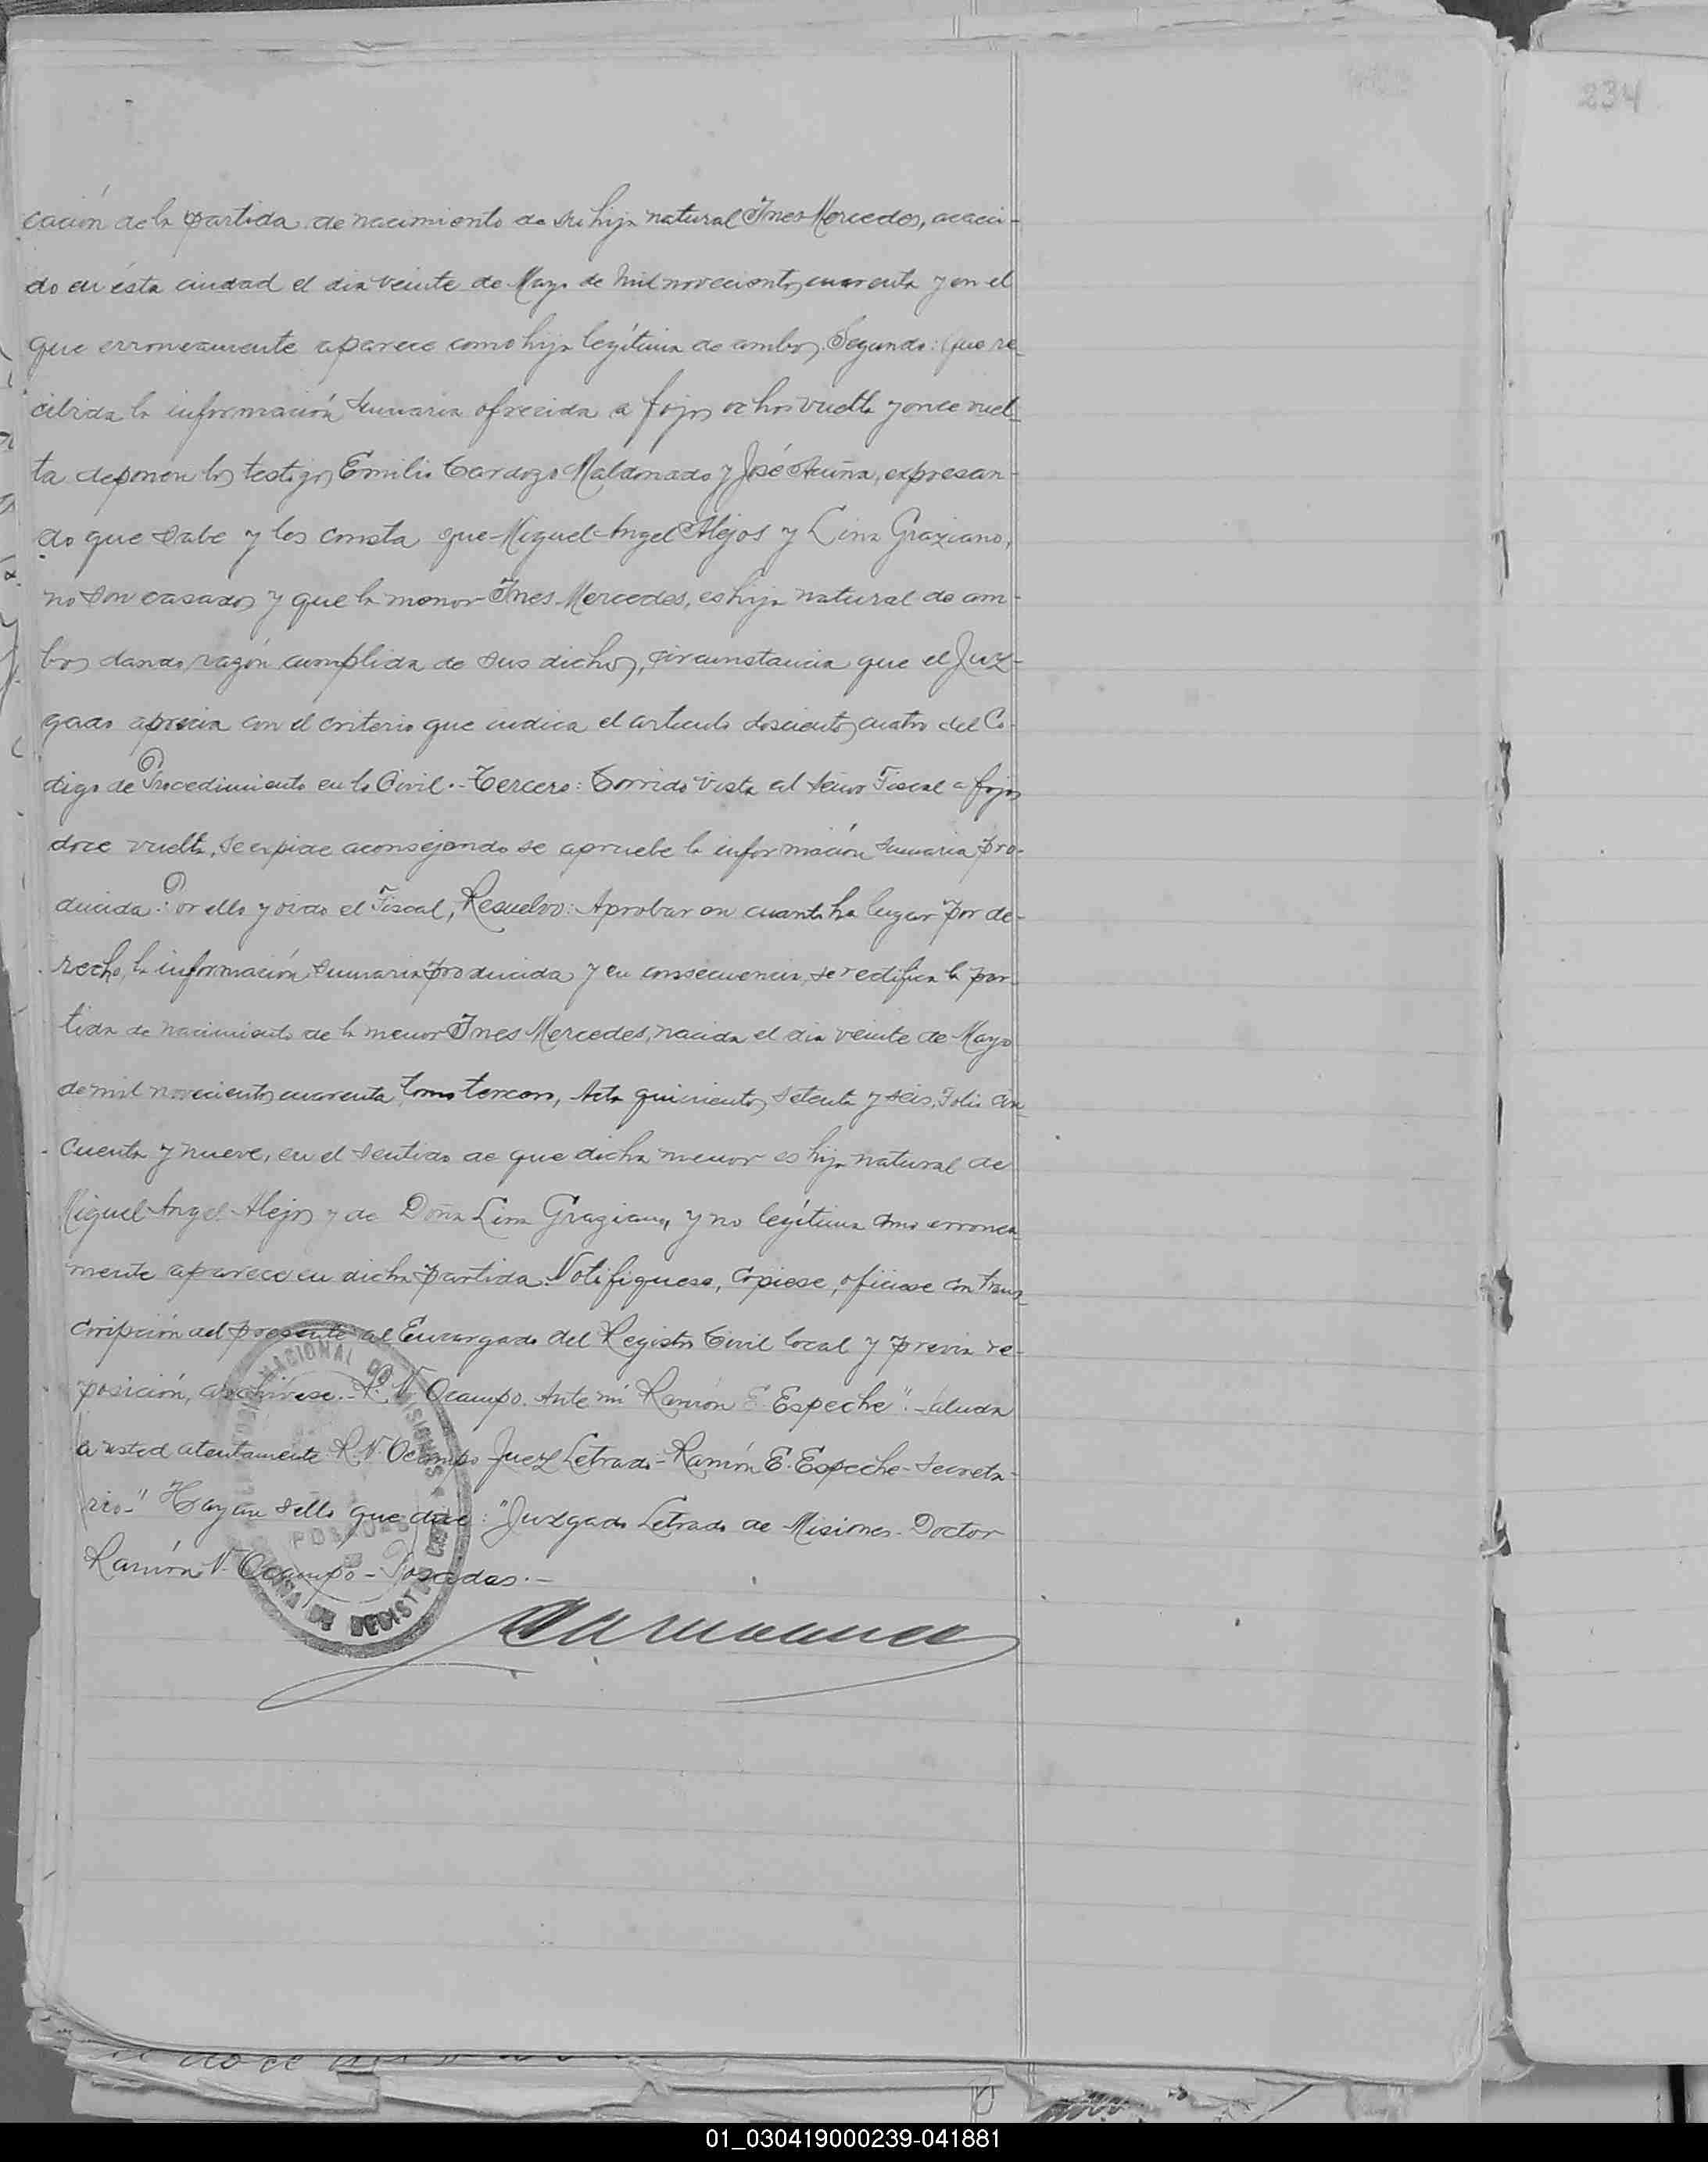 234
cación de la partida de nacimiento de su hija natural Ines Mercedes, acaeci-
do en ésta ciudad el dia veinte de Mayo de mil novecientos cuarenta y en el
que erroneamente aparece como hija legítima de ambos. Segundo: Que re-
cibida la información sumaria ofrecida a fojas ocho vuelta y once vuel-
ta deponen los testigos Emilio Cardozo Maldonado y José Acuña, expresan-
do que sabe y les consta que Miguel Angel Alejos y Lina Graziano,
no son casados y que la menor Ines Mercedes, es hija natural de am-
bos dando razón cumplida de sus dichos, circunstancia que el Juz-
gado aprecia con el criterio que indica el articulo doscientos cuatro del Co-
digo de Procedimiento en lo Civil.- Tercero: Corrido vista al señor Fiscal a fojas
doce vuelta, se expide aconsejando se apruebe la información sumaria pro-
ducida. Por ello y oido el Fiscal, Resuelvo: Aprobar en cuanto ha lugar por de-
recho, la información sumaria producida y en consecuencia, se rectifica la par-
tida de nacimiento de la menor Ines Mercedes, nacida el dia veinte de Mayo
de mil novecientos cuarenta, tomo tercero, Acta quinientos setenta y seis, Folio cin-
cuenta y nueve, en el sentido de que dicha menor es hija natural de
Miguel Angel Alejos y de Doña Lina Graziano, y no legítima como erronea-
mente aparece en dicha partida. Notifiquese, copiese, oficiese con trans-
cripción del presente al Encargado del Registro Civil local y previa re-
posición, archivese.- R. N. Ocampo. Ante mi Ramón E. Espeche".- Saluda
a usted atentamente R. N. Ocampo Juez Letrado - Ramón E. Espeche - Secreta-
rio-" Hay un sello que dice: "Juzgado Letrado de Misiones - Doctor
Ramón N. Ocampo - Posadas.-
NACIONAL DE MISIONES
POSADAS
OFICINA DE REGISTRO CIVIL
01_030419000239-041881